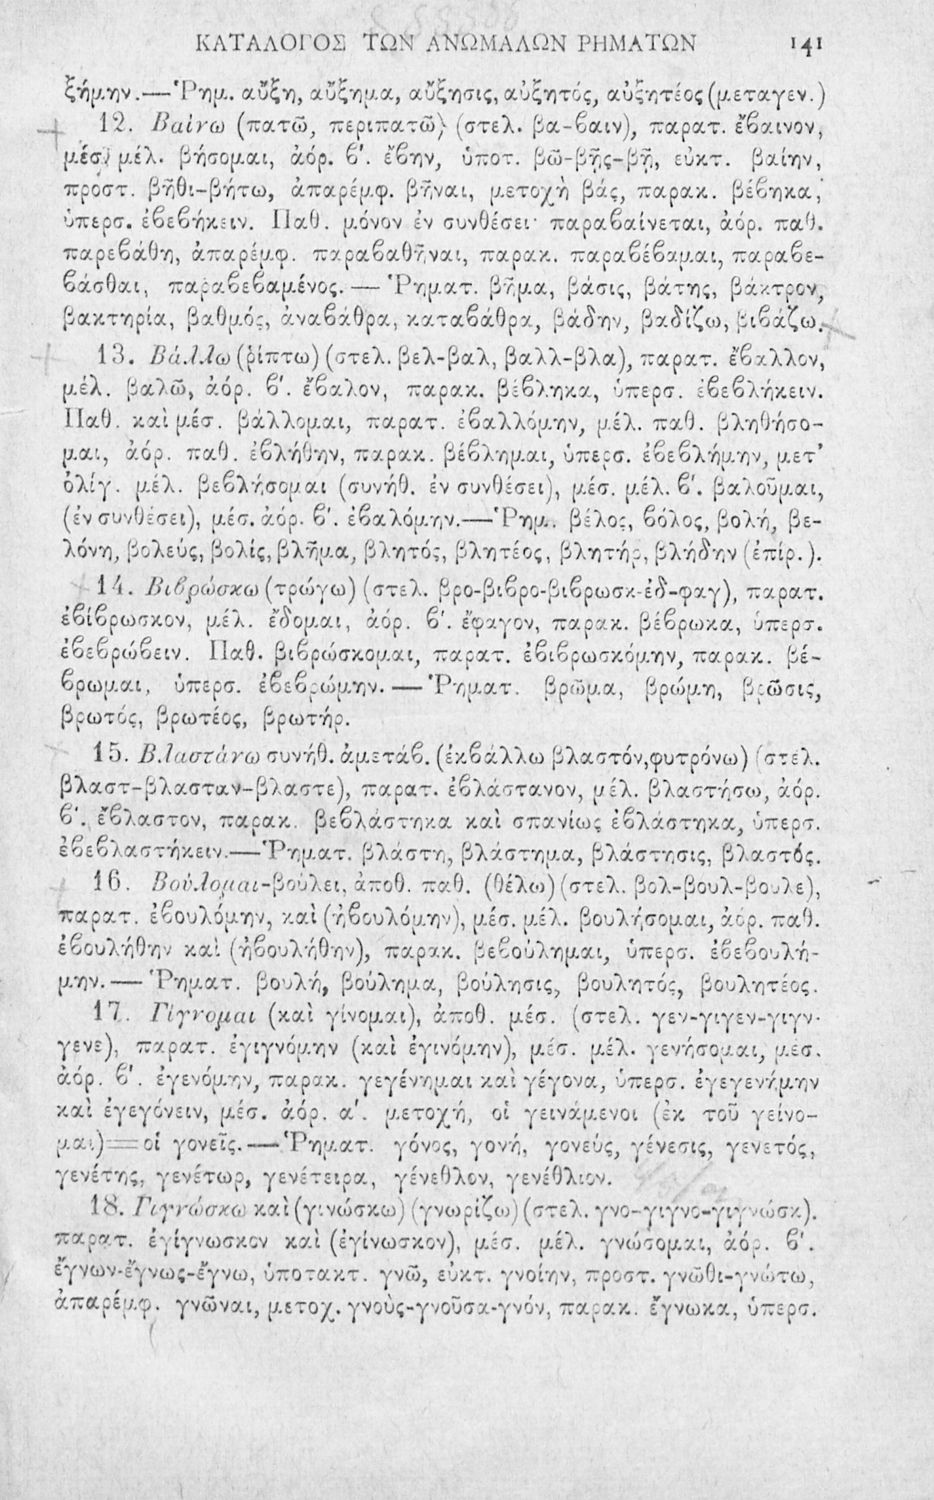 ΚΑΤΑΛΟΓΟΣ ΤΩΝ ΑΝΩΜΑΛΩΝ ΡΗΜΑΤΩΝ 141
ξήμην.—Ῥημ. αὔξη, αὔξημα, αὔξησις, αὐξητός, αὐξητέος (μεταγεν.)
12. Βαίνω (πατῶ, περιπατῶ) (στελ. βα-βαιν), παρατ. ἔβαινον,
μέσ. μέλ. βήσομαι, ἀόρ. β'. ἔβην, ὑποτ. βῶ-βῇς-βῇ, εὐκτ. βαίην,
προστ. βῆθι-βήτω, ἀπαρέμφ. βῆναι, μετοχὴ βάς, παρακ. βέβηκα,
ὑπερσ. ἐβεβήκειν. Παθ. μόνον ἐν συνθέσει· παραβαίνεται, ἀόρ. παθ.
παρεβάθη, ἀπαρέμφ. παραβαθῆναι, παρακ. παραβέβαμαι, παραβε-
βάσθαι, παραβεβαμένος. — Ῥηματ. βῆμα, βάσις, βάτης, βάκτρον,
βακτηρία, βαθμός, ἀναβάθρα, καταβάθρα, βάδην, βαδίζω, βιβάζω.
13. Βάλλω (ῥίπτω) (στελ. βελ-βαλ, βαλλ-βλα), παρατ. ἔβαλλον,
μέλ. βαλῶ, ἀόρ. β'. ἔβαλον, παρακ. βέβληκα, ὑπερσ. ἐβεβλήκειν.
Παθ. καὶ μέσ. βάλλομαι, παρατ. ἐβαλλόμην, μέλ. παθ. βληθήσο-
μαι, ἀόρ. παθ. ἐβλήθην, παρακ. βέβλημαι, ὑπερσ. ἐβεβλήμην, μετ'
ὀλίγ. μέλ. βεβλήσομαι (συνήθ. ἐν συνθέσει), μέσ. μέλ. β'. βαλοῦμαι,
(ἐν συνθέσει), μέσ. ἀόρ. β'. ἐβαλόμην.—Ῥημ. βέλος, βόλος, βολή, βε-
λόνη, βολεύς, βολίς, βλῆμα, βλητός, βλητέος, βλητήρ, βλήδην (ἐπίρ.).
14. Βιβρώσκω (τρώγω) (στελ. βρο-βιβρο-βιβρωσκ-ἐδ-φαγ), παρατ.
ἐβίβρωσκον, μέλ. ἔδομαι, ἀόρ. β'. ἔφαγον, παρακ. βέβρωκα, ὑπερσ.
ἐβεβρώβειν. Παθ. βιβρώσκομαι, παρατ. ἐβιβρωσκόμην, παρακ. βέ-
βρωμαι, ὑπερσ. ἐβεβρώμην. — Ῥηματ. βρῶμα, βρώμη, βρῶσις,
βρωτός, βρωτέος, βρωτήρ.
15. Βλαστάνω συνήθ. ἀμετάβ. (ἐκβάλλω βλαστόν, φυτρόνω) (στελ.
βλαστ-βλασταν-βλαστε), παρατ. ἐβλάστανον, μέλ. βλαστήσω, ἀόρ.
β'. ἔβλαστον, παρακ. βεβλάστηκα καὶ σπανίως ἐβλάστηκα, ὑπερσ.
ἐβεβλαστήκειν.—Ῥηματ. βλάστη, βλάστημα, βλάστησις, βλαστός.
16. Βούλομαι-βούλει, ἀποθ. παθ. (θέλω) (στελ. βολ-βουλ-βουλε),
παρατ. ἐβουλόμην, καὶ (ἠβουλόμην), μέσ. μέλ. βουλήσομαι, ἀόρ. παθ.
ἐβουλήθην καὶ (ἠβουλήθην), παρακ. βεβούλημαι, ὑπερσ. ἐβεβουλή-
μην.— Ῥηματ. βουλή, βούλημα, βούλησις, βουλητός, βουλητέος.
17. Γίγνομαι (καὶ γίνομαι), ἀποθ. μέσ. (στελ. γεν-γιγεν-γιγν-
γενε), παρατ. ἐγιγνόμην (καὶ ἐγινόμην), μέσ. μέλ. γενήσομαι, μέσ.
ἀόρ. β'. ἐγενόμην, παρακ. γεγένημαι καὶ γέγονα, ὑπερσ. ἐγεγενήμην
καὶ ἐγεγόνειν, μέσ. ἀόρ. α'. μετοχή, οἱ γεινάμενοι (ἐκ τοῦ γείνο-
μαι)=οἱ γονεῖς.— Ῥηματ. γόνος, γονή, γονεύς, γένεσις, γενετός,
γενέτης, γενέτωρ, γενέτειρα, γένεθλον, γενέθλιον.
18. Γιγνώσκω καὶ (γινώσκω) (γνωρίζω) (στελ. γνο-γιγνο-γιγνώσκ).
παρατ. ἐγίγνωσκον καὶ (ἐγίνωσκον), μέσ. μέλ. γνώσομαι, ἀόρ. β'.
ἔγνων-ἔγνως-ἔγνω, ὑποτακτ. γνῶ, εὐκτ. γνοίην, προστ. γνῶθι-γνώτω,
ἀπαρέμφ. γνῶναι, μετοχ. γνοὺς-γνοῦσα-γνόν, παρακ. ἔγνωκα, ὑπερσ.